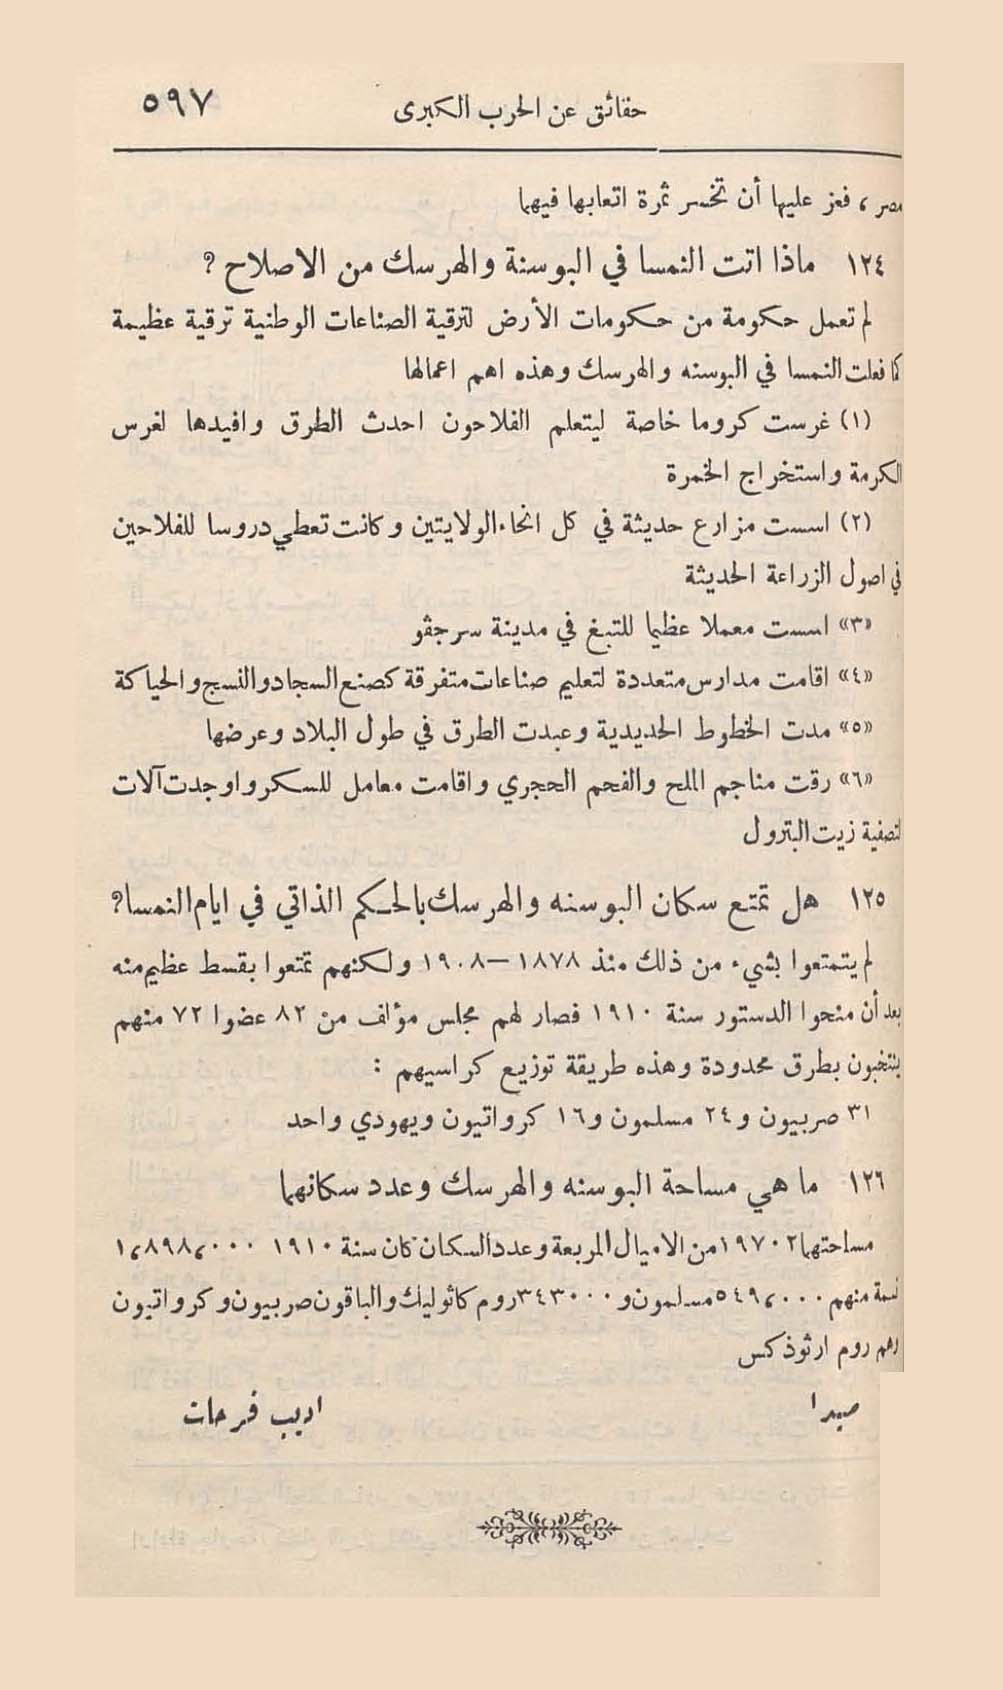 حقائق عن الحرب الكبرى ٥٩٧
مصر ، فعز عليها أن تخسر ثمرة اتعابها فيهما
١٢٤ ماذا اتت النمسا في البوسنة والهرسك من الاصلاح ؟
لم تعمل حكومة من حكومات الأرض لترقية الصناعات الوطنية ترقية عظيمة
كما فعلت النمسا في البوسنه والهرسك وهذه اهم اعمالها
(١) غرست كروما خاصة ليتعلم الفلاحون احدث الطرق وافيدها لغرس
الكرمة واستخراج الخمرة
(٢) اسست مزارع حديثة في كل انحاء الولايتين وكانت تعطي دروسا للفلاحين
في اصول الزراعة الحديثة
«٣» اسست معملا عظيما للتبغ في مدينة سرجڤو
«٤» اقامت مدارس متعددة لتعليم صناعات متفرقة كصنع السجاد والنسج والحياكة
«٥» مدت الخطوط الحديدية وعبدت الطرق في طول البلاد وعرضها
«٦» رقت مناجم الملح والفحم الحجري واقامت معامل للسكر واوجدت آلات
لتصفية زيت البترول
١٢٥ هل تمتع سكان البوسنه والهرسك بالحكم الذاتي في ايام النمسا؟
لم يتمتعوا بشيء من ذلك منذ ١٨٧٨–١٩٠٨ ولكنهم تمتعوا بقسط عظيم منه
بعد أن منحوا الدستور سنة ١٩١٠ فصار لهم مجلس مؤلف من ٨٢ عضوا ٧٢ منهم
ينتخبون بطرق محدودة وهذه طريقة توزيع كراسيهم :
٣١ صربيون و ٢٤ مسلمون و١٦ كرواتيون ويهودي واحد
١٢٦ ما هي مساحة البوسنه والهرسك وعدد سكانهما
مساحتهما ١٩٧٠٢ من الاميال المربعة وعدد السكان كان سنة ١٩١٠ ١،٨٩٨،٠٠٠
نسمة منهم ٥٤٩،٠٠٠ مسلمون و ٣٤٣٠٠٠ روم كاثوليك والباقون صربيون وكرواتيون
وهم روم ارثوذكس
صيدا اديب فرحات